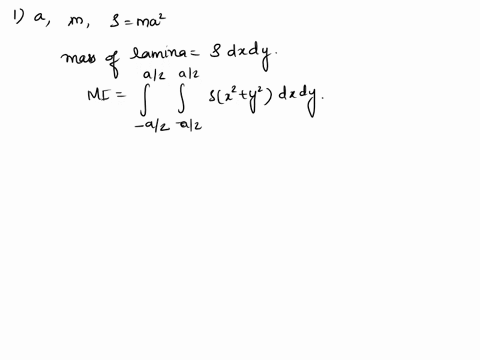 1) a, m, ρ = ma²
mass of lamina = ρ dxdy.
MI = ∫_{-a/2}^{a/2} ∫_{-a/2}^{a/2} ρ(x²+y²) dxdy.